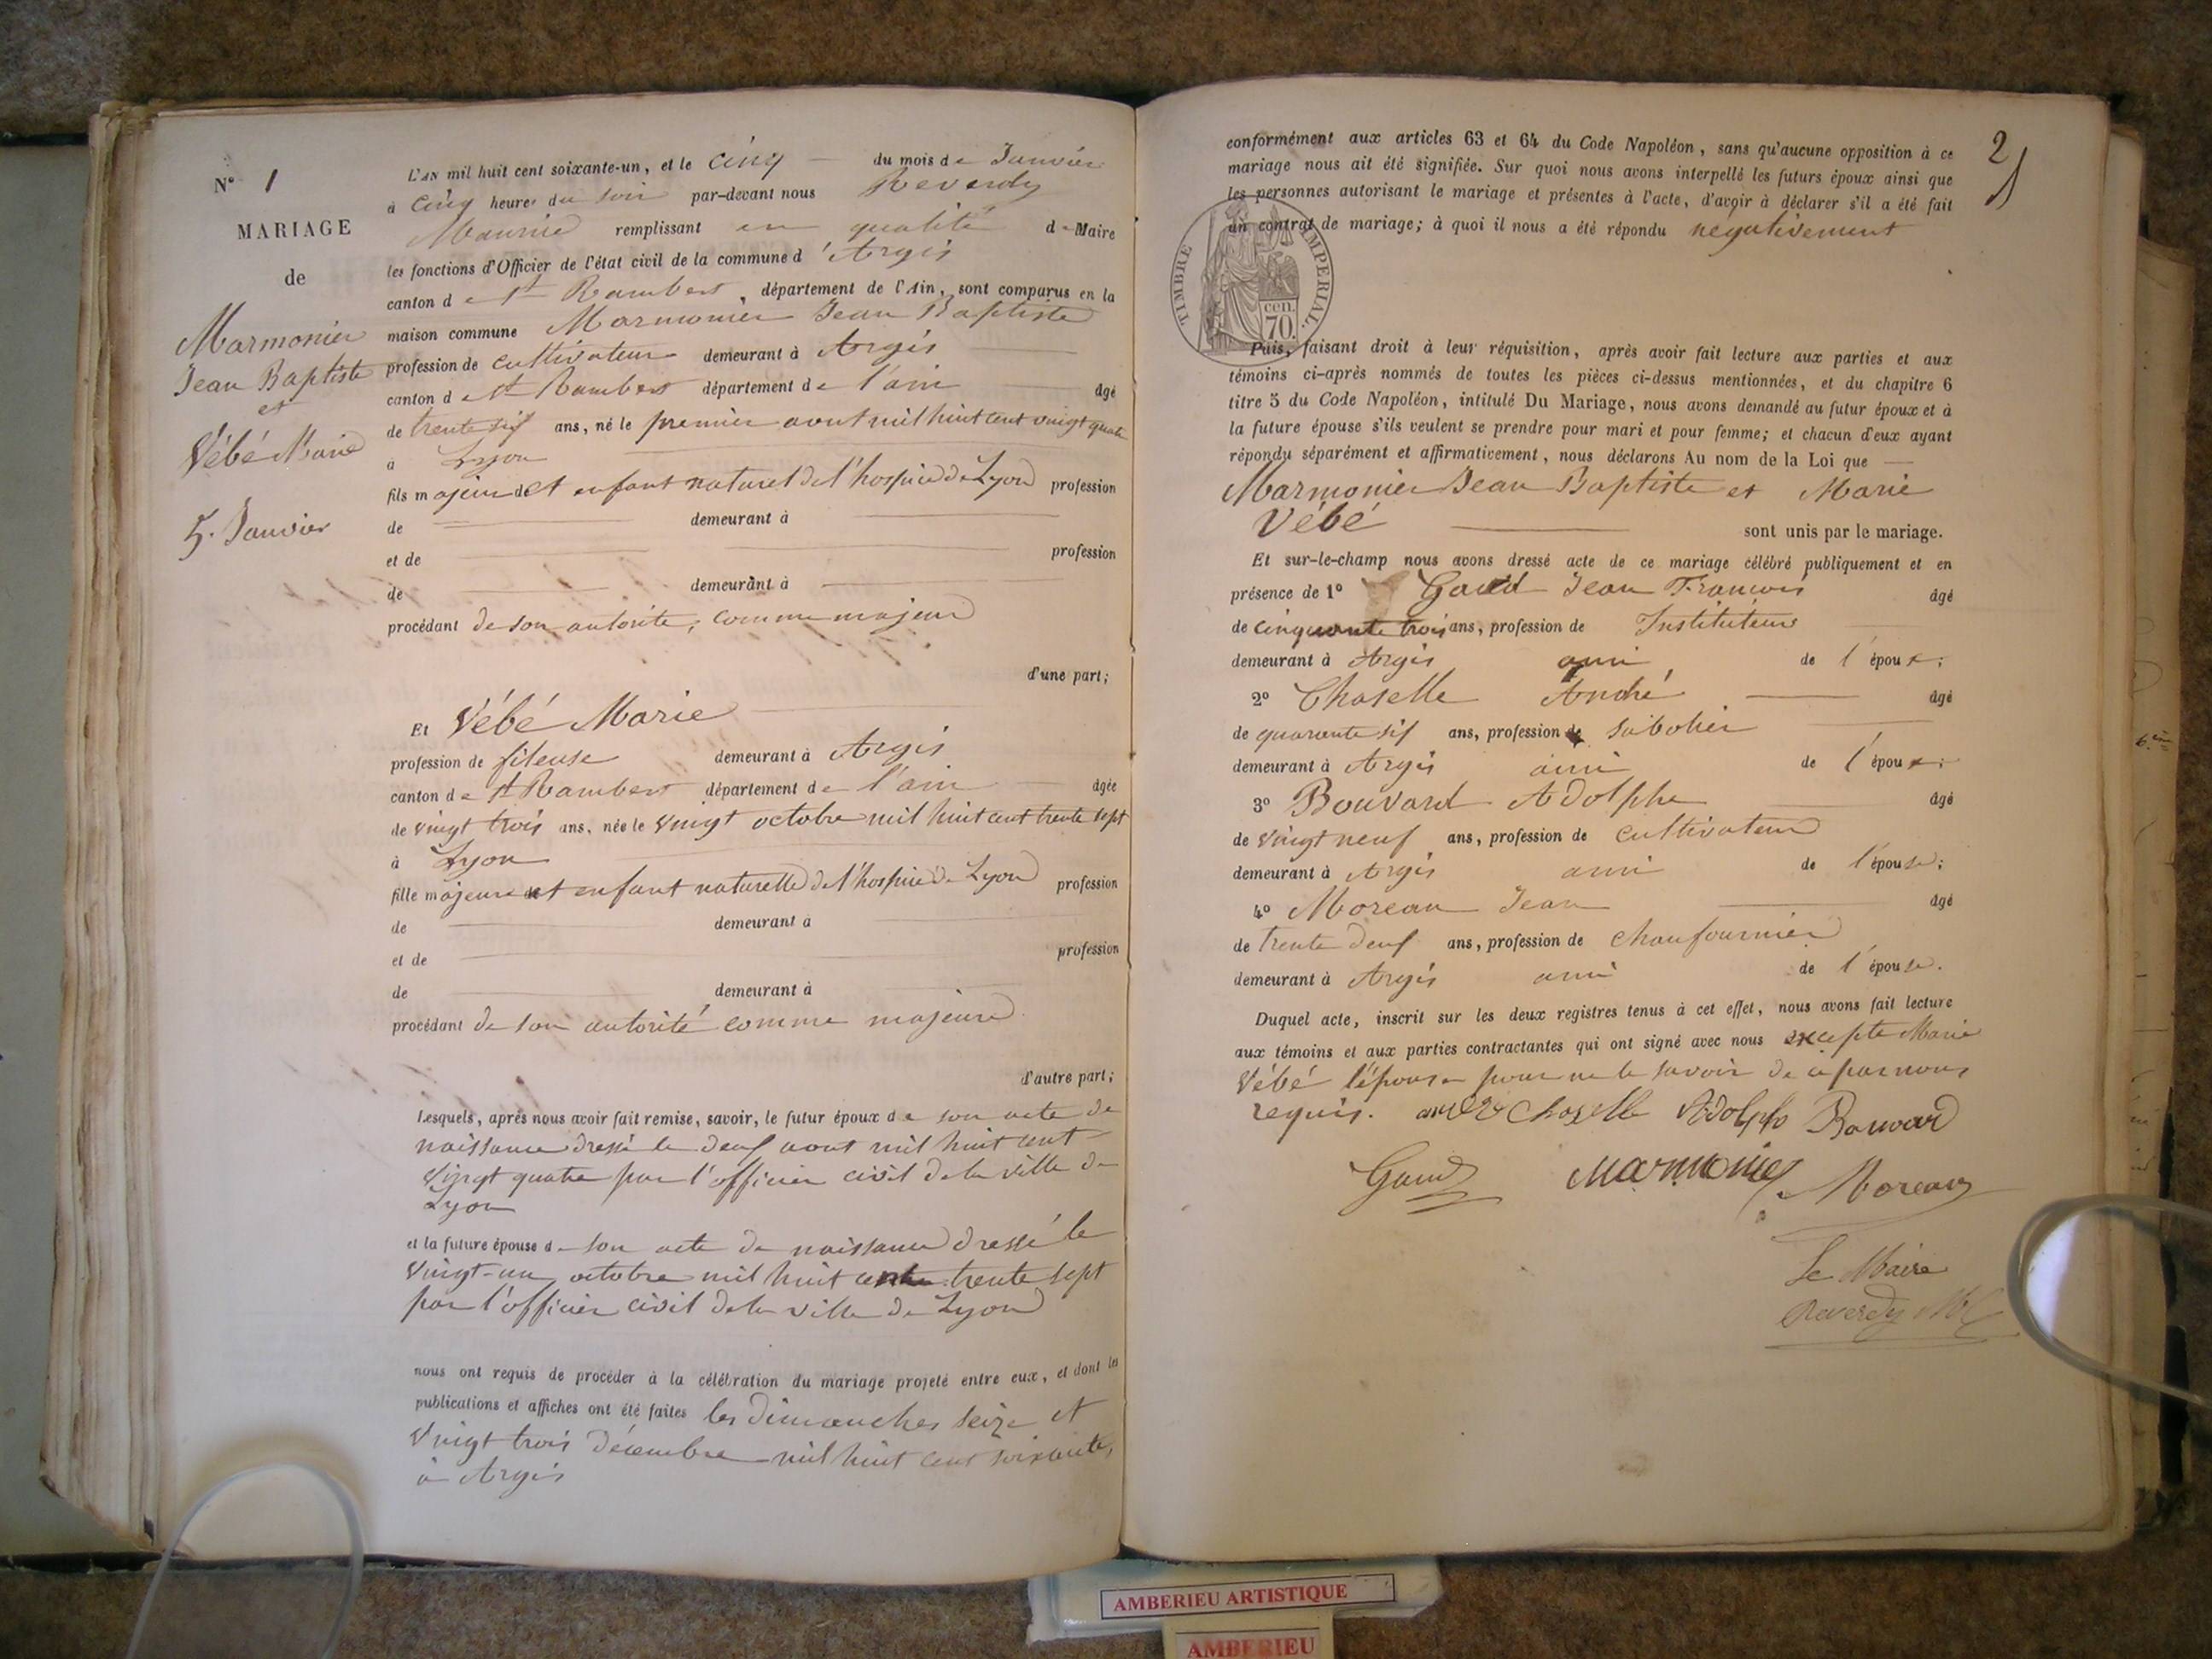 N° 1
MARIAGE
de
Marmonier
Jean Baptiste
et
Vébé Marie
5. Janvier
L'AN mil huit cent soixante-un, et le cinq du mois de Janvier
à cinq heures du soir par-devant nous Reverdy
Maurice remplissant en qualité de Maire
les fonctions d'Officier de l'état civil de la commune d'Argis
canton de St Rambert, département de l'Ain, sont comparus en la
maison commune Marmonier Jean Baptiste
profession de cultivateur demeurant à Argis
canton de St Rambert département de l'ain âgé
de trente six ans, né le premier aout mil huit cent vingt quatre
à Lyon
fils majeur et enfant naturel de l'hospice de Lyon profession
de demeurant à
et de profession
de demeurant à
procédant de son autorité, comme majeur
d'une part;
Et Vébé Marie
profession de fileuse demeurant à Argis
canton de St Rambert département de l'ain âgée
de vingt trois ans, née le vingt octobre mil huit cent trente sept
à Lyon
fille majeure et enfant naturelle de l'hospice de Lyon profession
de demeurant à
et de profession
de demeurant à
procédant de son autorité comme majeure
d'autre part;
Lesquels, après nous avoir fait remise, savoir, le futur époux de son acte de
naissance dressé le deux aout mil huit cent
vingt quatre par l'officier civil de la ville de
Lyon
et la future épouse de son acte de naissance dressé le
vingt-un octobre mil huit cent trente sept
par l'officier civil de la ville de Lyon
nous ont requis de procéder à la célébration du mariage projeté entre eux, et dont les
publications et affiches ont été faites les dimanches seize et
vingt trois décembre mil huit cent soixante,
à Argis
2
conformément aux articles 63 et 64 du Code Napoléon, sans qu'aucune opposition à ce
mariage nous ait été signifiée. Sur quoi nous avons interpellé les futurs époux ainsi que
les personnes autorisant le mariage et présentes à l'acte, d'avoir à déclarer s'il a été fait
un contrat de mariage; à quoi il nous a été répondu négativement
TIMBRE IMPERIAL.
cen.
70.
Puis, faisant droit à leur réquisition, après avoir fait lecture aux parties et aux
témoins ci-après nommés de toutes les pièces ci-dessus mentionnées, et du chapitre 6
titre 5 du Code Napoléon, intitulé Du Mariage, nous avons demandé au futur époux et à
la future épouse s'ils veulent se prendre pour mari et pour femme; et chacun d'eux ayant
répondu séparément et affirmativement, nous déclarons Au nom de la Loi que
Marmonier Jean Baptiste et Marie
Vébé sont unis par le mariage.
Et sur-le-champ nous avons dressé acte de ce mariage célébré publiquement et en
présence de 1° Gaud Jean François âgé
de cinquante trois ans, profession de Instituteur
demeurant à Argis ami de l'époux;
2° Chaselle André âgé
de quarante six ans, profession de sabotier
demeurant à Argis ami de l'époux;
3° Bouvard Adolphe âgé
de vingt neuf ans, profession de cultivateur
demeurant à Argis ami de l'épouse;
4° Moreau Jean âgé
de trente deux ans, profession de chaufournier
demeurant à Argis ami de l'épouse.
Duquel acte, inscrit sur les deux registres tenus à cet effet, nous avons fait lecture
aux témoins et aux parties contractantes qui ont signé avec nous excepte Marie
Vébé l'épouse pour ne le savoir de ce par nous
requis. Chaselle Adolphe Bouvard
Gaud Marmonier Moreau
Le Maire
Reverdy
AMBERIEU ARTISTIQUE
AMBERIEU